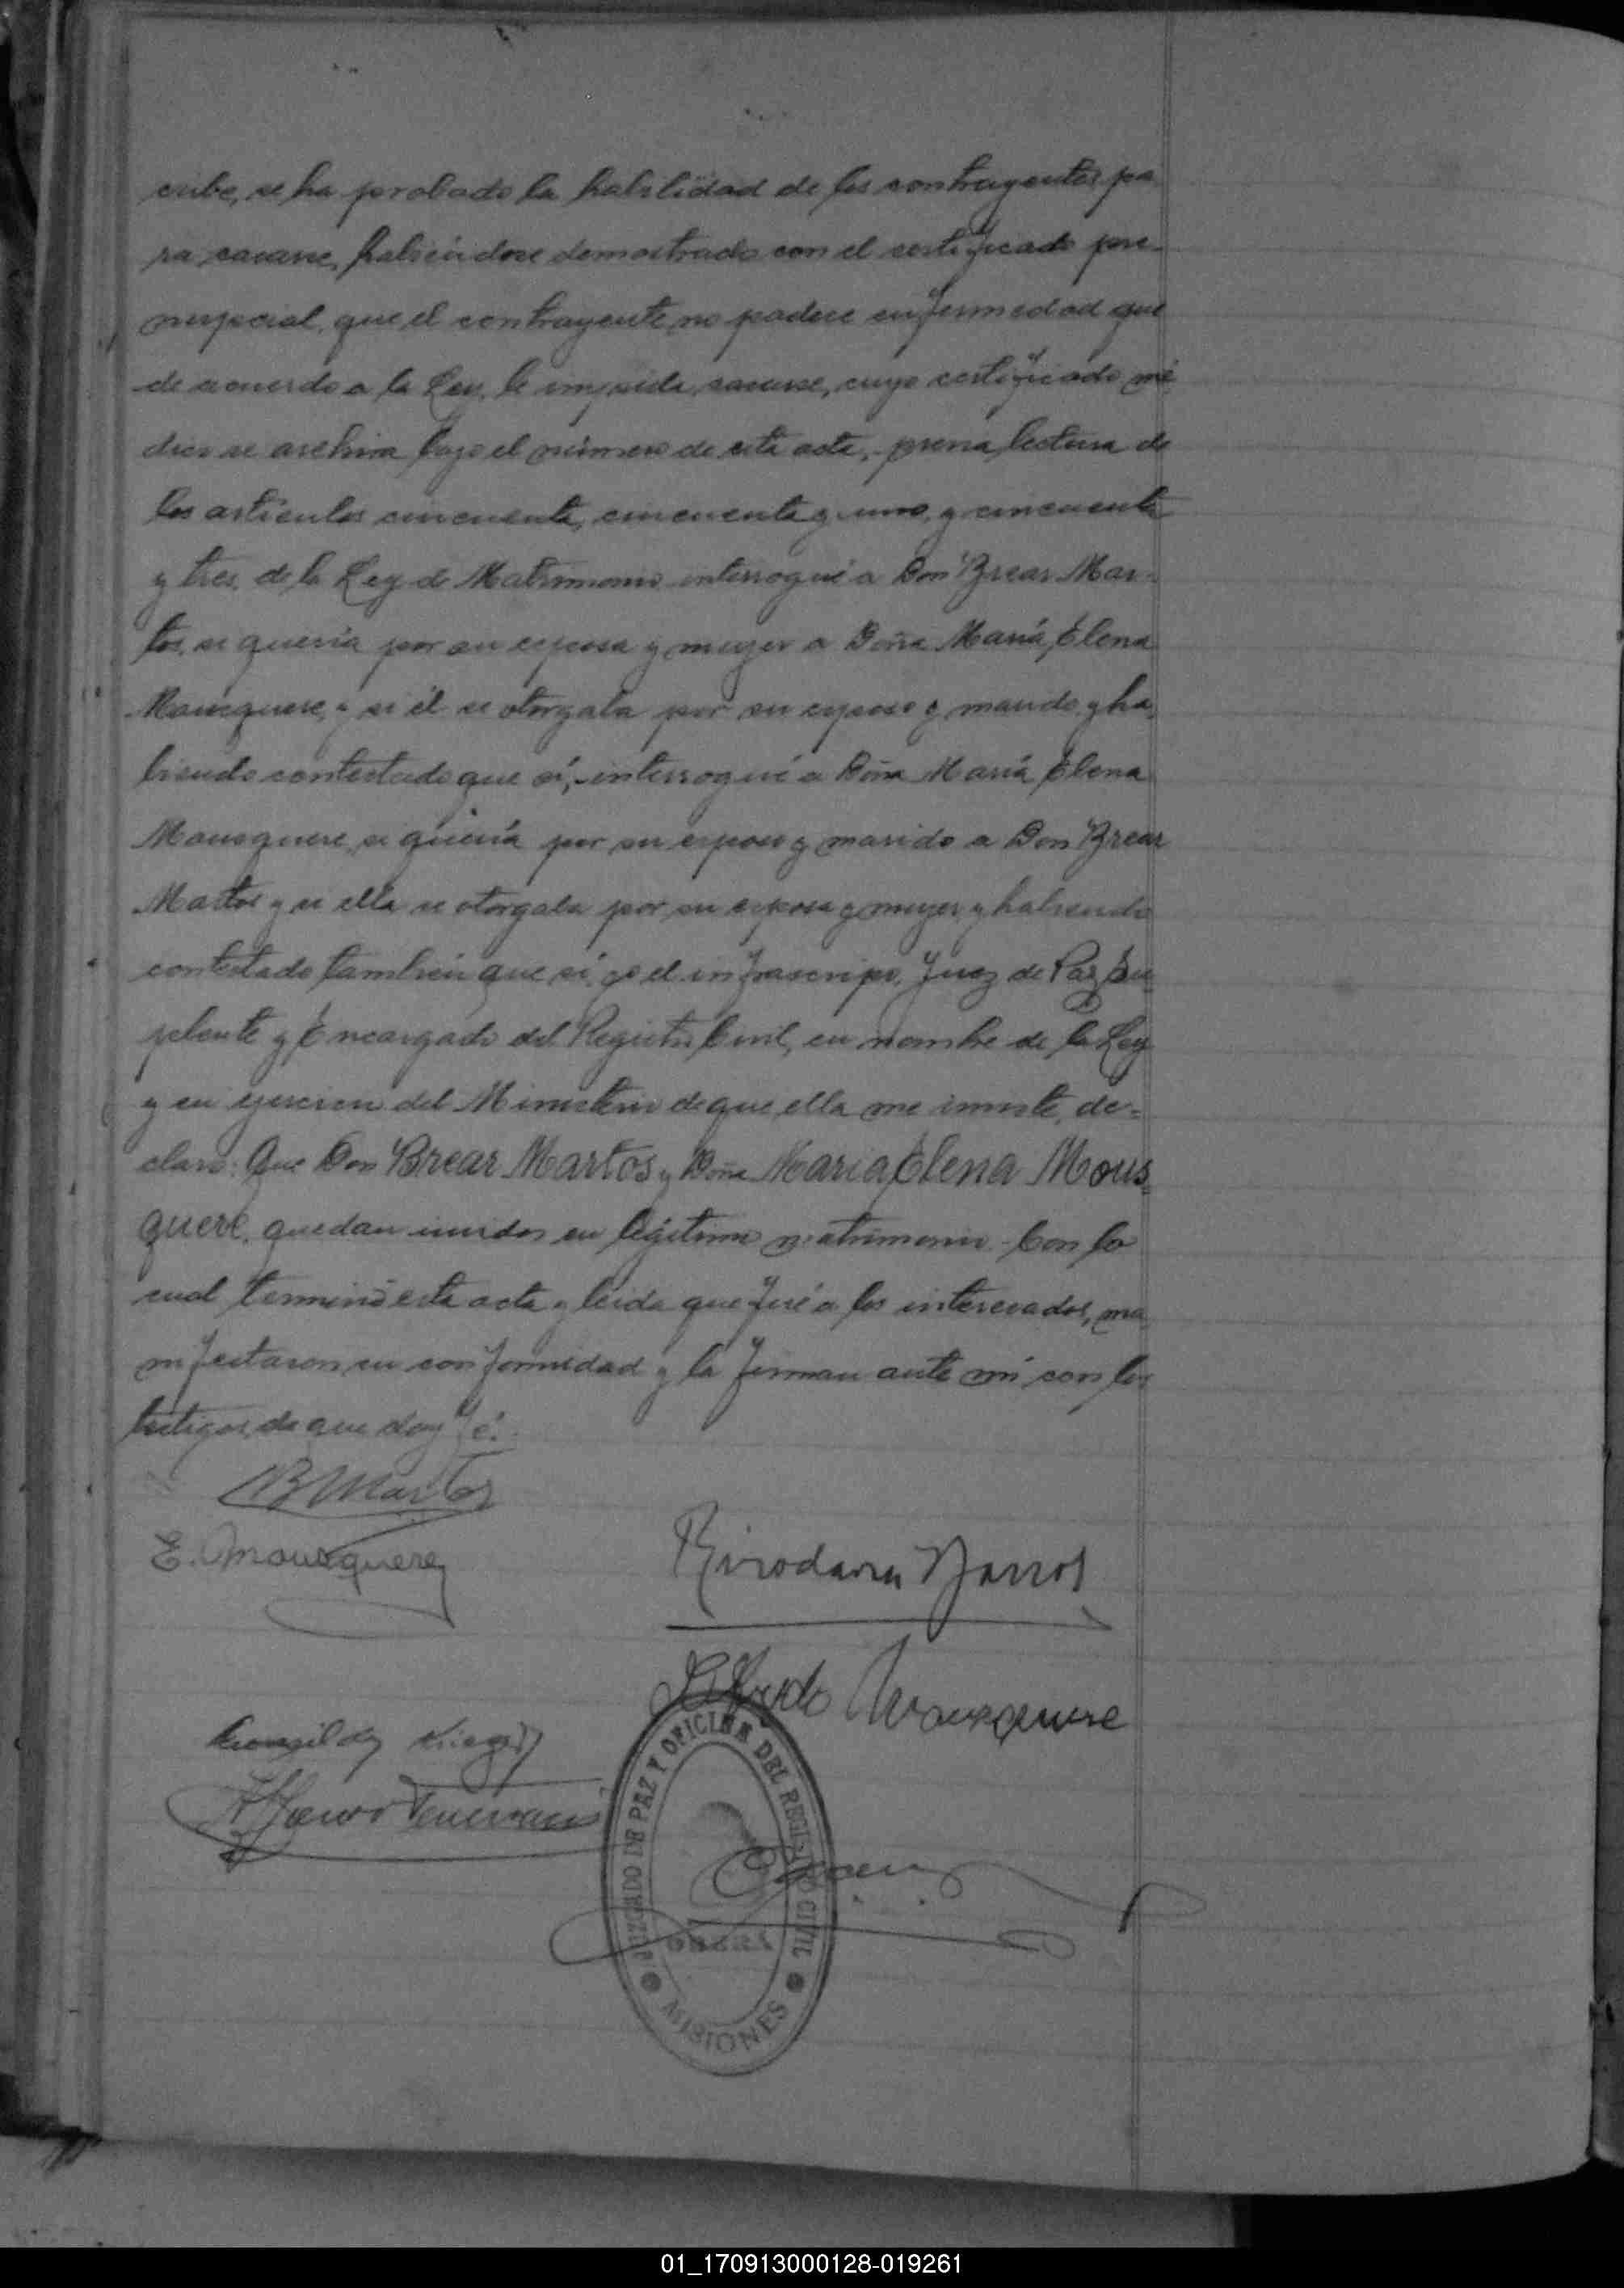 cribe, se ha probado la habilidad de los contrayentes pa-
ra casarse, habiéndose demostrado con el certificado pre-
nupcial, que el contrayente no padece enfermedad que
de acuerdo a la Ley, le impida casarse, cuyo certificado mé-
dico se archiva bajo el número de esta acta, previa lectura de
los artículos cincuenta, cincuenta y uno, y cincuenta
y tres, de la Ley de Matrimonio interrogué a Don Brear Mar-
tos, si quería por su esposa y mujer a Doña María Elena
Mousquere, y si él se otorgaba por su esposo y marido, y ha-
biendo contestado que sí, interrogué a Doña María Elena
Mousquere, si quería por su esposo y marido a Don Brear
Martos y si ella se otorgaba por su esposa y mujer, y habiendo
contestado también que sí, yo el infrascripto, Juez de Paz Su-
plente y Encargado del Registro Civil, en nombre de la Ley
y en ejercicio del Ministerio de que ella me inviste, de=
claro: Que Don Brear Martos y Doña María Elena Mous=
quere, quedan unidos en legítimo matrimonio. Con lo
cual terminó esta acta y leída que fué a los interesados, ma-
nifestaron su conformidad y la firman ante mí con los
testigos, de que doy fé.
B Martos
E. Mousquere
Alfredo Mousquere
JUZGADO DE PAZ Y OFICINA DEL REGISTRO CIVIL
OBERA
MISIONES
01_170913000128-019261